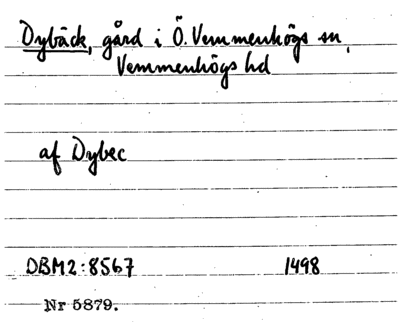 Dybäck, gård i Ö. Vemmenhögs sn,
Vemmenhögs hd
af Dybec
DBM2:8567 1498
Nr 5879.